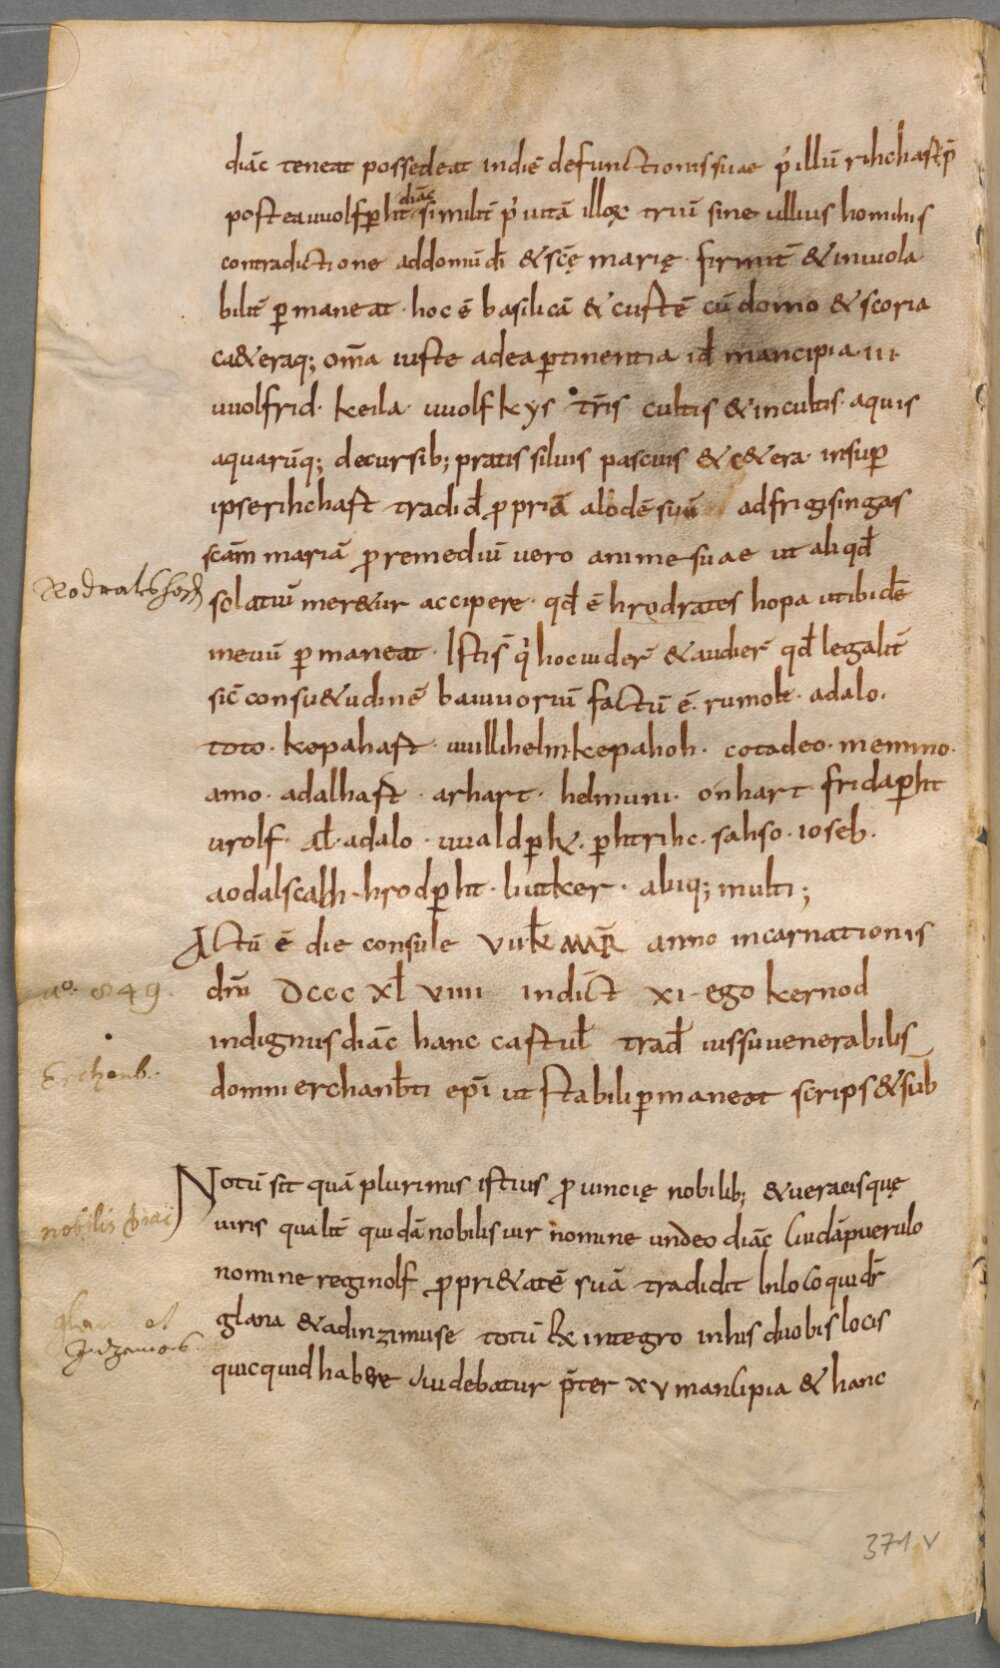 diāc teneat possedeat indiē defunctionis suae p' illū rihchaft p̄
postea uuolfꝑht diāc similit̄ p' uitā illoꝝ triū sine ullius hominis
contradictione ad domū dī & scę marię firmit̄ & inuiola
bilit̄ ꝑmaneat · hoc ē basilicā & custē cū domo & scoria
ca&eraq; om̄a iuste ad ea ꝑtinentia id mancipia · iii ·
uuolfrid · keila · uuolfkys tr̄is cultis & incultis · aquis
aquarūq; decursib; pratis siluis pascuis & c&era · insuꝑ
ipse rihchaft tradid̄ ꝓpriā alodē suū ad frigisingas
scām mariā ꝓ remediū uero anime suae ut aliqd̄
Rodraleshof
solatiū mer&ur accipere · qd̄ ē hrodrates hopa ut ibidē
in euū ꝑmaneat · Istis q' hoc uider̄ & audier̄ qd̄ legalit̄
sic̄ consu&udinē bauuoriū factū ē · rumolt · adalo ·
toto · kepahaft · uuillihelm · kepahoh · cotadeo · memmo ·
amo · adalhaft · arhart · helmuni · onhart · fridaꝑht
urolf · al̄ · adalo · uualdꝑht · ꝑhtrihc · sahso · ioseb ·
aodalscalh · hrodꝑht · liutker · aliiq; multi ;
Actū ē die consule vii · k̄ mar̄ anno incarnationis
aº. 849.
dn̄i dccc xl viiii indict̄ xi · ego kernod
indignus diāc hanc cartul̄ trad̄ iussu uenerabilis
Erchanb.
domni erchanb̄ti ep̄i ut stabili ꝑmaneat scrips& sub
Notū sit quā plurimis istius ꝓuincię nobilib; & ueracisquę
nobilis diac
uiris qualit̄ quidā nobilis uir nomine undeo diāc cuidā puerulo
nomine reginolf ꝓpri&atē suā tradidit In loco qui dr̄
glan et
glana & ad inzimuse totū & integro in his duobis locis
Inzemos
quicquid habere uidebatur p̄ter xv mancipia & hanc
371 v